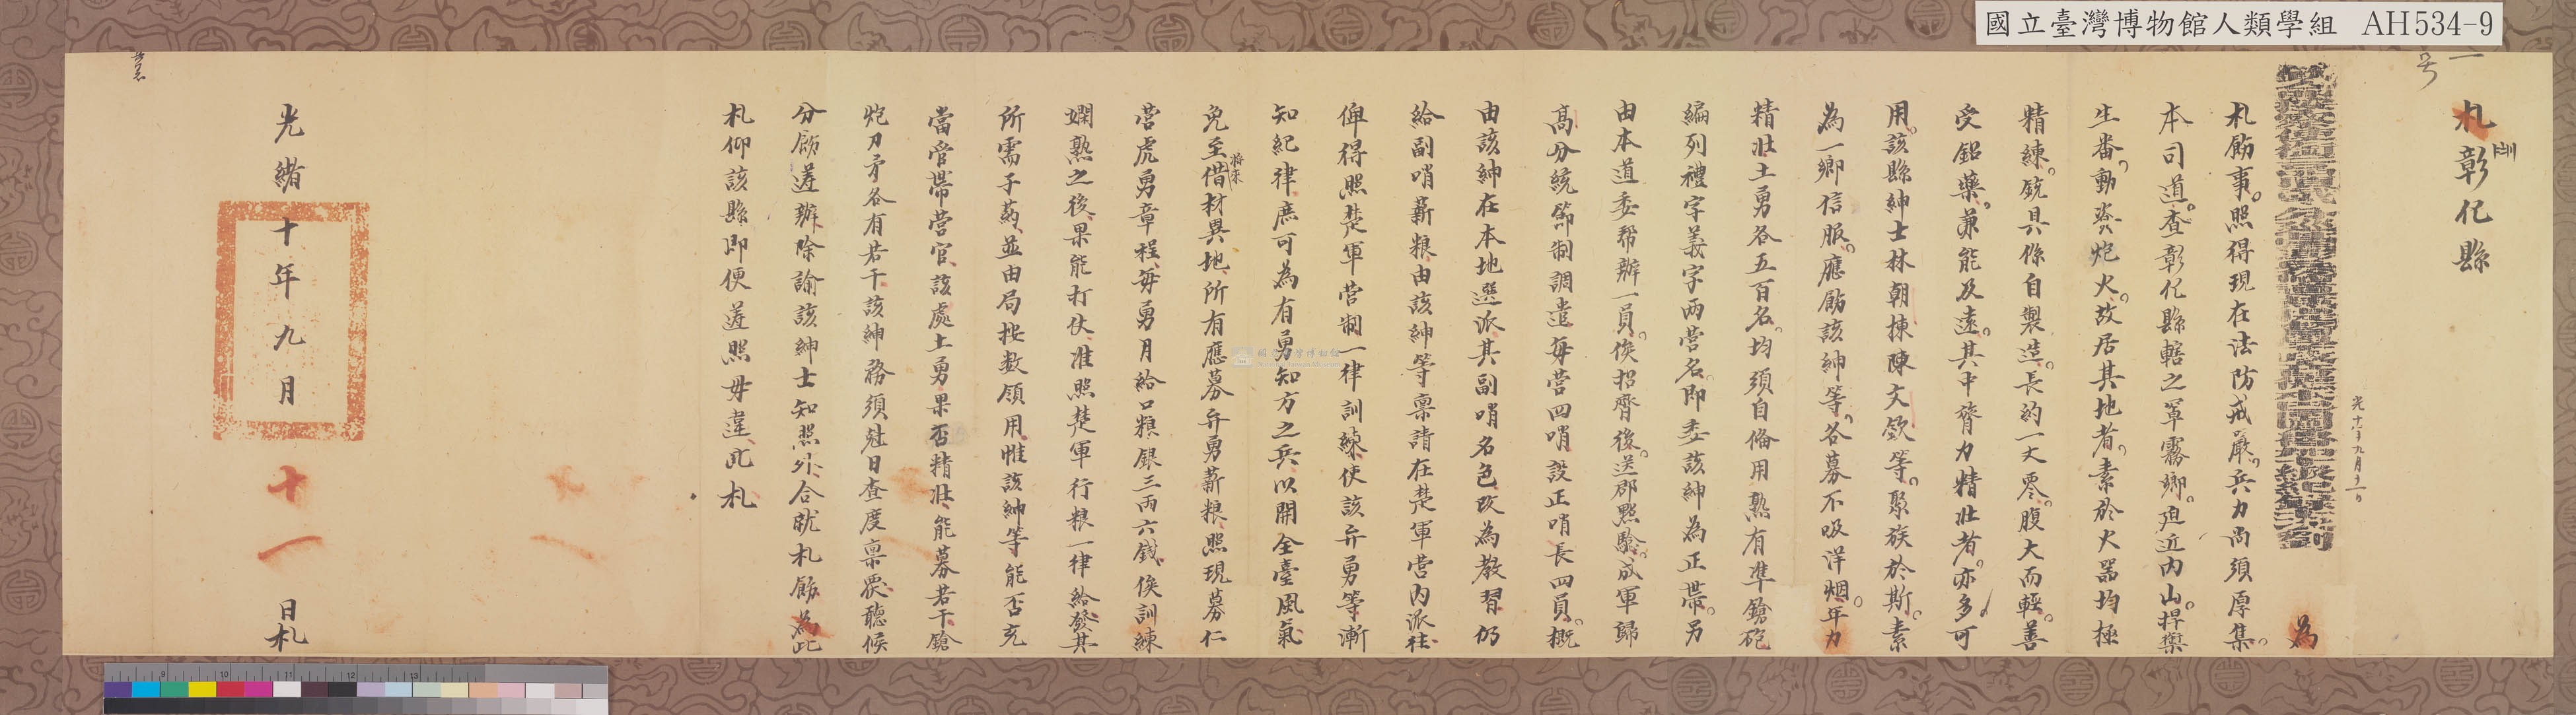 國立臺灣博物館人類學組 AH534-9
一
号
札彰化縣
為
札飭事。照得現在法防戒嚴，兵力尚須厚集。
本司道查彰化縣轄之罩霧鄉。廹近內山。捍禦
生番，動炎炮火。故居其地者，素於火器均極
精練。銃具係自製造。長約一丈零。腹大而輕。善
受鉛藥。兼能及遠。其中膂力精壯者。亦多可
用。該縣紳士林朝揀陳文欽等。聚族於斯。素
為一鄉信服。應飭該紳等。各募不吸洋烟。年力
精壯土勇各五百名。均須自偹用熟有準鎗砲
編列禮字義字兩营名。即委該紳為正帶。另
由本道委帮辦一員。俟招齊後。送郡點驗。成軍歸
髙分統節制調遣每营四哨設正哨長四員。概
由該紳在本地選派其副哨名色改為教習仍
給副哨薪粮由該紳等禀請在楚軍营內派往
俾得照楚軍营制一律訓練使該弁勇等漸
知紀律庶可為有勇知方之兵以開全臺風氣
免至借材異地所有應募弁勇薪粮照現募仁
將來
营虎勇章程每勇月給口粮銀三両六錢俟訓練
嫻熟之後果能打仗准照楚軍行粮一律給發其
所需子葯並由局按数領用惟該紳等能否充
當管帶营官該處土勇果否精壯能募若干鎗
炮刀矛各有若干該紳務須尅日查度禀覆聽候
分飭遵辦除諭該紳士知照外合就札飭為此
札仰該縣即便遵照毋違此札
光緒十年九月十一日札